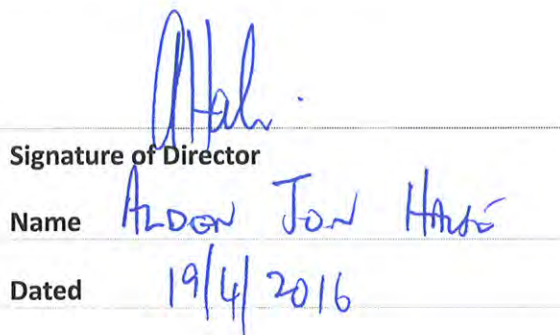 Signature of Director
Name ALDEN JON HALSE
Dated 19/4/2016